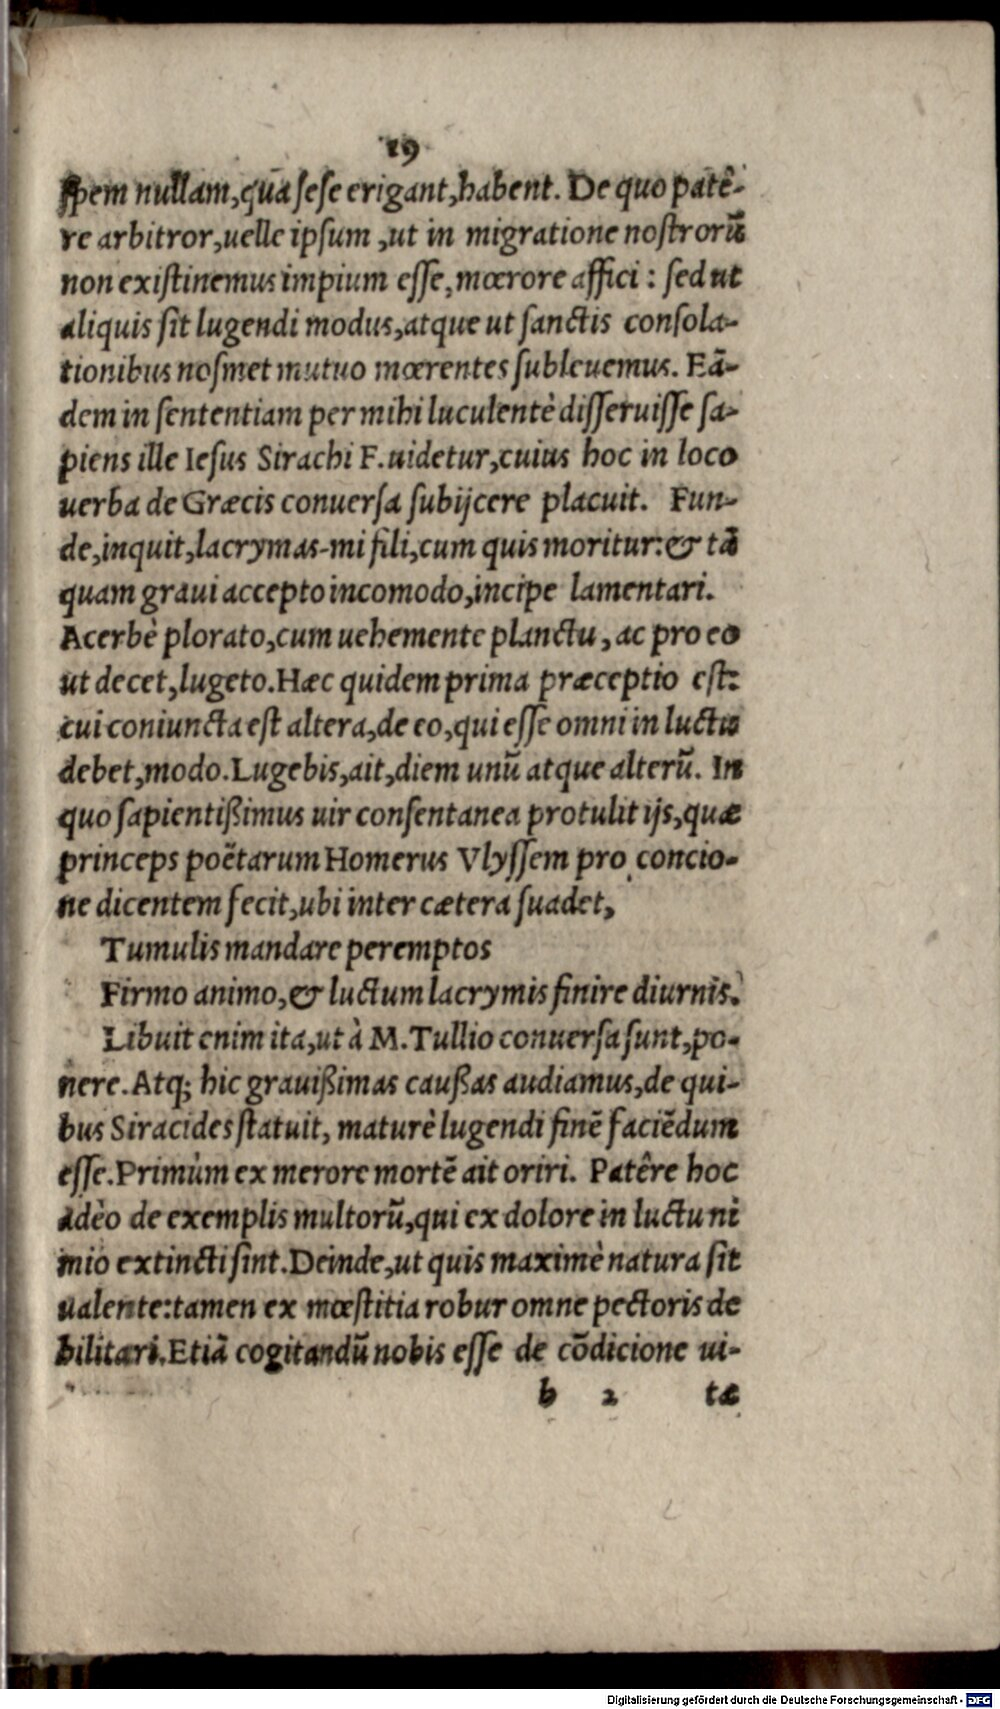 19
ſpem nullam, quā ſeſe erigant, habent. De quo patê-
re arbitror, uelle ipſum, ut in migratione noſtrorū
non exiſtinemus impium eſſe, mœrore affici: ſed ut
aliquis ſit lugendi modus, atque ut ſanctis conſola-
tionibus noſmet mutuo mœrentes ſubleuemus. Eā-
dem in ſententiam per mihi luculentè diſſeruiſſe ſa-
piens ille Ieſus Sirachi F. uidetur, cuius hoc in loco
uerba de Græcis conuerſa ſubijcere placuit. Fun-
de, inquit, lacrymas mi fili, cum quis moritur: & tā
quam graui accepto incomodo, incipe lamentari.
Acerbè plorato, cum uehemente planctu, ac pro eo
ut decet, lugeto. Hæc quidem prima præceptio est:
cui coniuncta eſt altera, de eo, qui eſſe omni in luctu
debet, modo. Lugebis, ait, diem unū atque alterū. In
quo ſapientißimus uir conſentanea protulit ijs, quæ
princeps poëtarum Homerus Vlyſſem pro concio-
ne dicentem fecit, ubi inter cætera ſuadet,
Tumulis mandare peremptos
Firmo animo, & luctum lacrymis finire diurnis.
Libuit enim ita, ut à M. Tullio conuerſa ſunt, po-
nere. Atq; hic grauißimas cauſſas audiamus, de qui-
bus Siracides ſtatuit, maturè lugendi finē faciēdum
eſſe. Primùm ex merore mortē ait oriri. Patêre hoc
adèo de exemplis multorū, qui ex dolore in luctu ni
mio extincti ſint. Deinde, ut quis maximè natura ſit
ualente: tamen ex mœſtitia robur omne pectoris de
bilitari. Etiā cogitandū nobis eſſe de cōdicione ui-
b 2 tæ
Digitalisierung gefördert durch die Deutsche Forschungsgemeinschaft - DFG